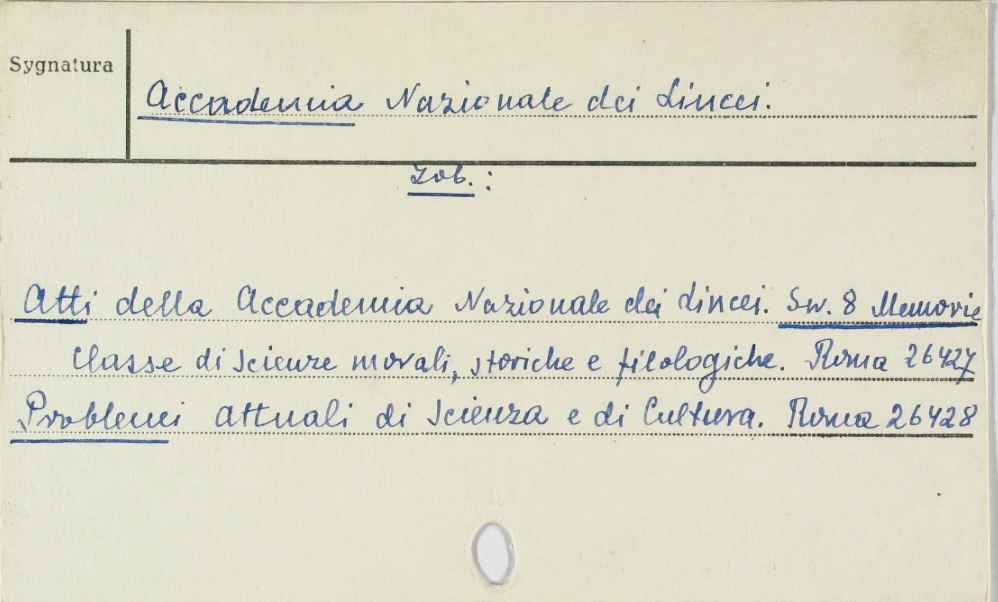 Sygnatura
Accademia Nazionale dei Lincei.
Zob.:
Atti della Accademia Nazionale dei Lincei. Ser. 8 Memorie
Classe di Scienze morali, storiche e filologiche. Roma 26427
Problemi attuali di Scienza e di Cultura. Roma 26428